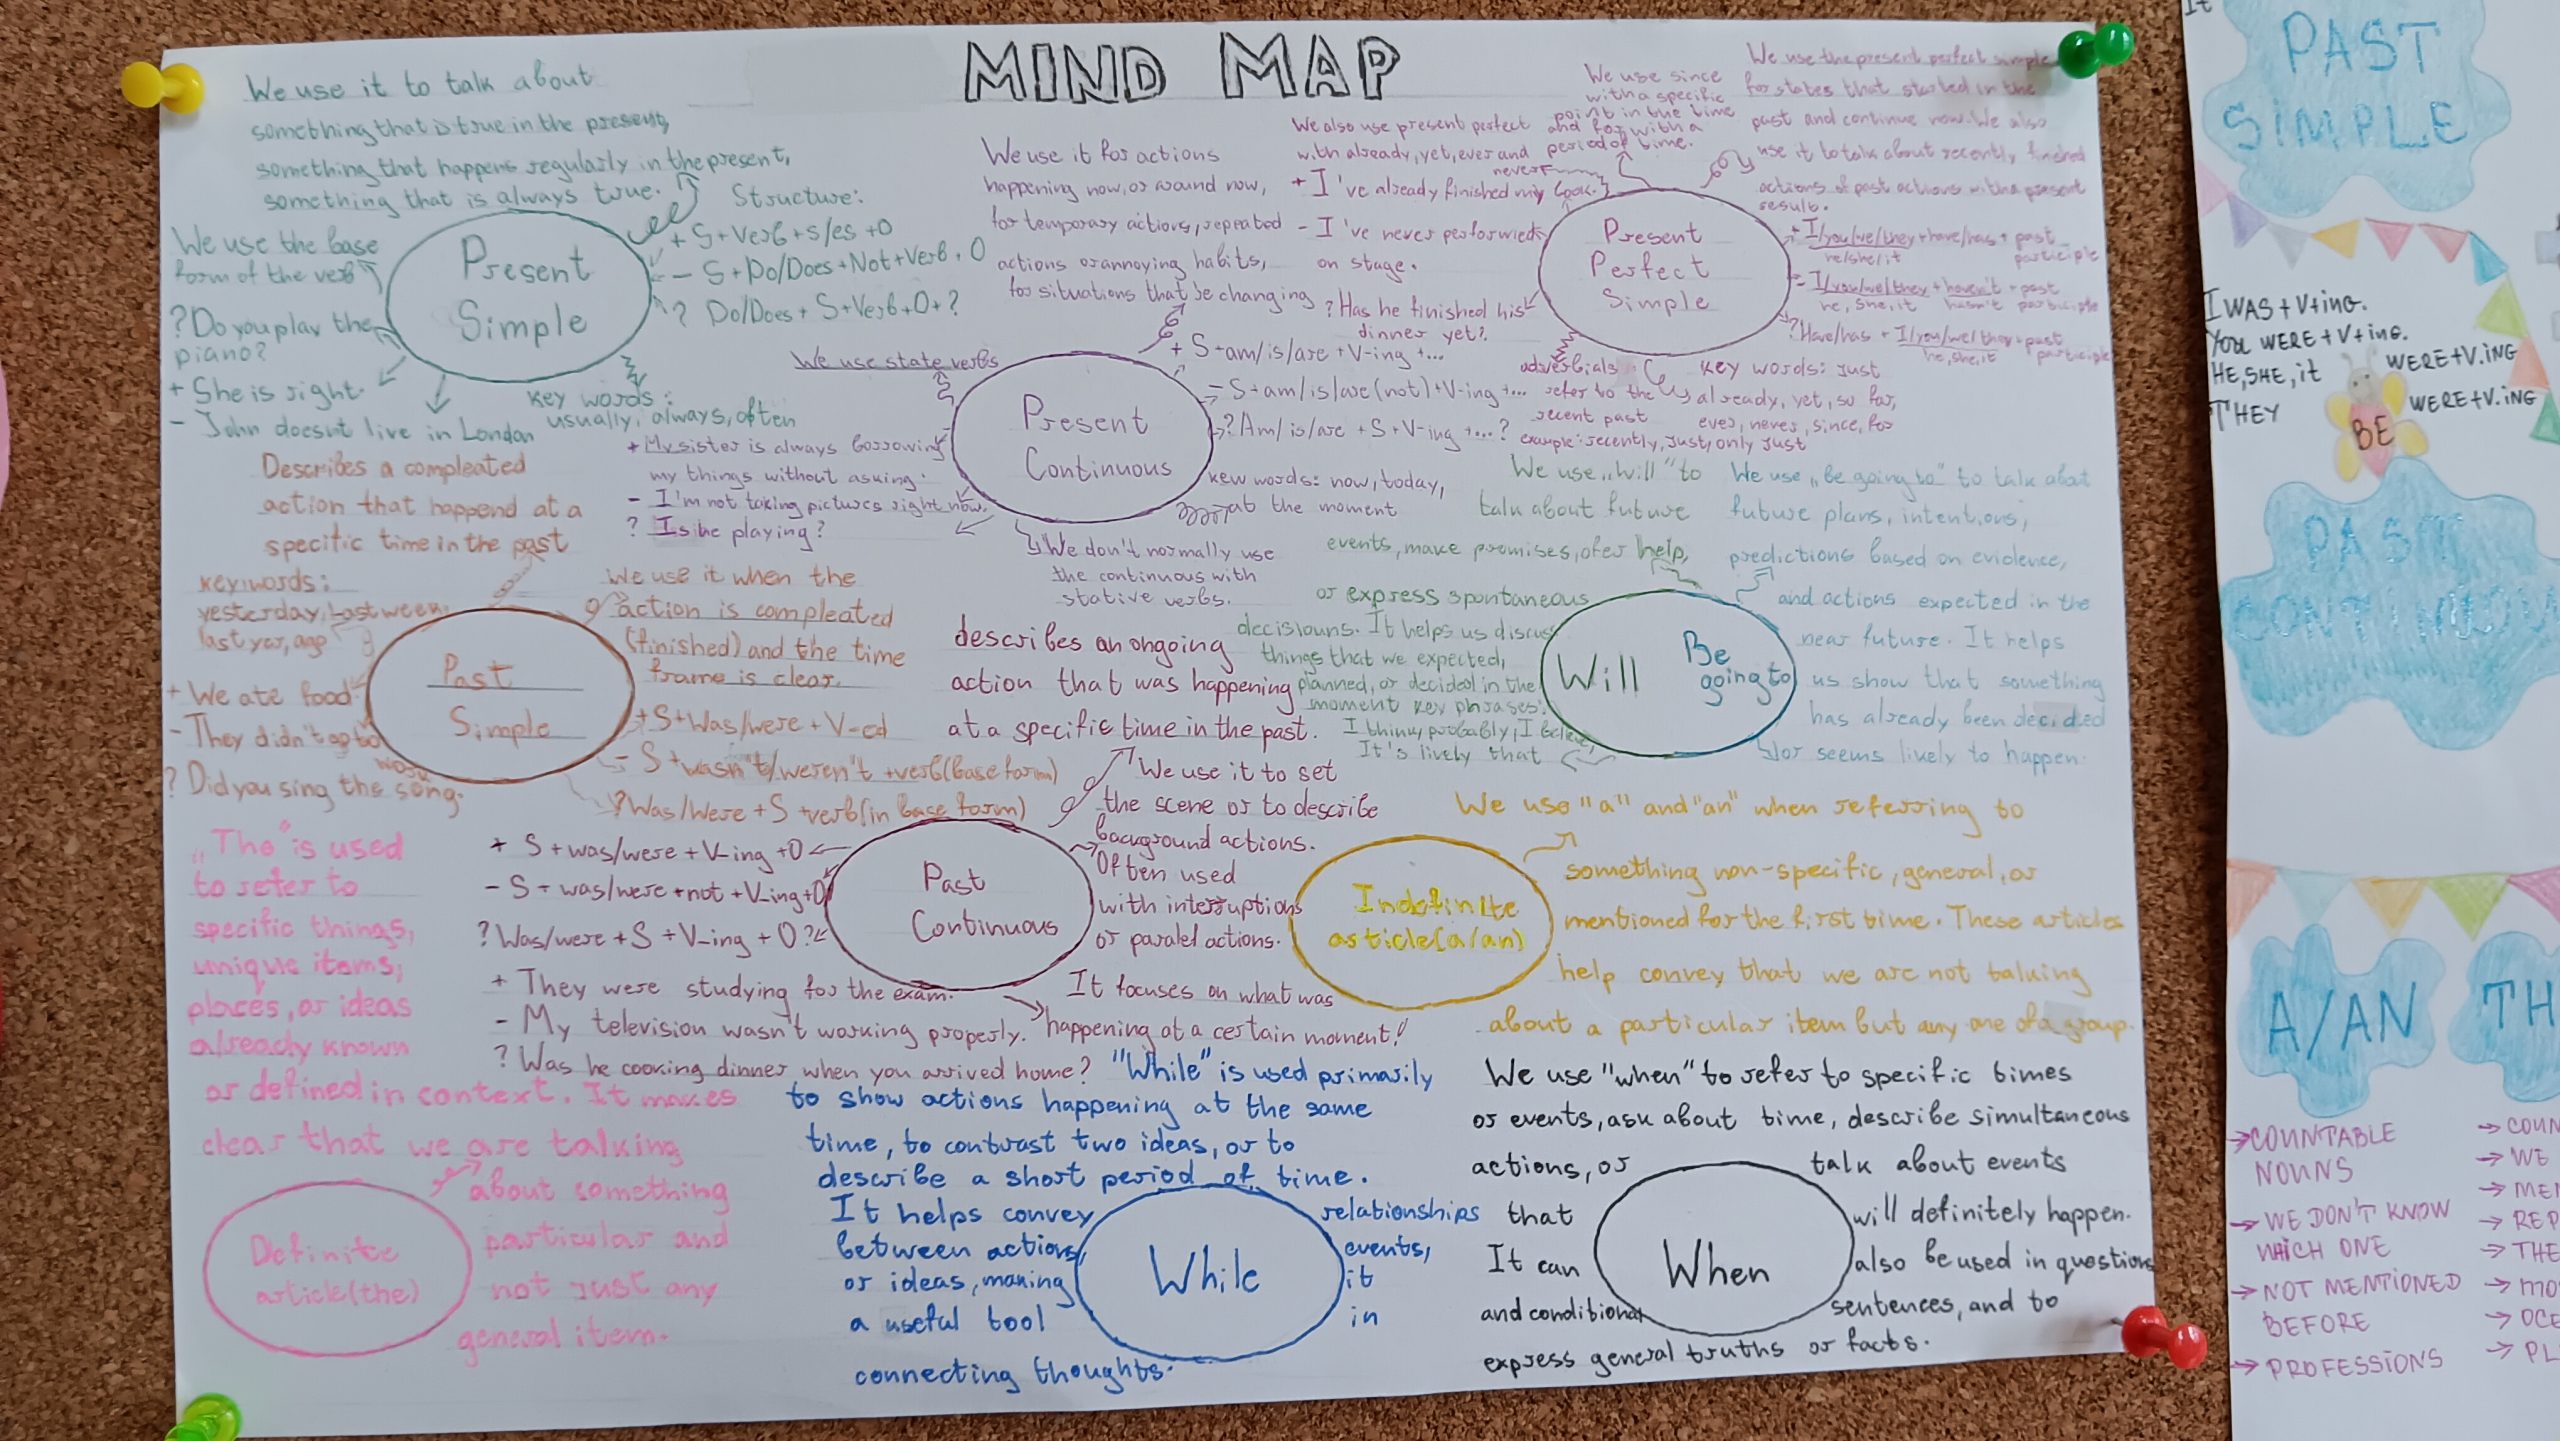 MIND MAP
We use it to talk about
something that is true in the present,
something that happens regularly in the present,
something that is always true.
We use the base
form of the verb
Present
Simple
Structure:
+ S+Verb+s/es+O
- S+Do/Does+Not+Verb+O
? Do/Does+S+Verb+O+?
? Do you play the
piano?
+ She is right.
- John doesnt live in London
key words:
usually, always, often
We use it for actions
happening now, or around now,
for temporary actions, repeated
actions or annoying habits,
for situations that be changing
We use state verbs
Present
Continuous
+ S+am/is/are+V-ing+...
- S+am/is/are(not)+V-ing+...
? Am/is/are+S+V-ing+...?
+ My sister is always borrowing
my things without asking.
- I'm not taking pictures right now.
? Is he playing?
kew words: now, today,
at the moment
We don't normally use
the continuous with
stative verbs.
We use since
with a specific
point in the time
and for with a
period of time.
We also use present perfect
with already, yet, ever and
never
+ I've already finished my
- I've never performed
on stage.
? Has he finished his
dinner yet?
We use the present perfect simple
for states that started in the
past and continue now. We also
use it to talk about recently finished
actions of past actions with a present
result.
Present
Perfect
Simple
+ I/you/we/they+have/has+past
he/she/it participle
- I/you/we/they+haven't+past
he, she, it hasn't participle
? Have/has+I/you/we/they+past
he, she, it participle
adverbials
refer to the
recent past
example: recently, just, only just
key words: just
already, yet, so far,
ever, never, since, for
Describes a compleated
action that happend at a
specific time in the past
key words:
yesterday, last week,
We use it when the
action is compleated
(finished) and the time
frame is clear.
Past
Simple
+ We ate food
- They didn't go to
work
? Did you sing the song.
+S+Was/were+V-ed
- S+wasn't/weren't+verb(base form)
? Was/Were+S+verb(in base form)
We use „will" to
talk about future
events, make promises, ofer help,
or express spontaneous
decisiouns. It helps us discuss
things that we expected,
planned, or decided in the
moment key phrases:
I think, probably, I believe,
It's lively that
Will
Be
going to
We use „be going to" to talk abat
future plans, intentions,
predictions based on evidence,
and actions expected in the
near future. It helps
us show that something
has already been decided
or seems likely to happen.
describes an ongoing
action that was happening
at a specific time in the past.
We use it to set
the scene or to describe
background actions.
Often used
with interruptions
or paralel actions.
Past
Continuous
+ S+was/were+V-ing+O
- S+was/were+not+V-ing+O
? Was/were+S+V-ing+O?
+ They were studying for the exam.
- My television wasn't working properly.
? Was he cooking dinner when you arrived home?
It focuses on what was
happening at a certain moment!
We use "a" and "an" when referring to
something non-specific, general, or
mentioned for the first time. These articles
help convey that we are not talking
about a particular item but any one of a group.
Indefinite
article(a/an)
„The" is used
to refer to
specific things,
unique items,
places, or ideas
already known
or defined in context. It makes
clear that we are talking
about something
particular and
not just any
general item.
Definite
article(the)
"While" is used primarily
to show actions happening at the same
time, to contrast two ideas, or to
describe a short period of time.
It helps convey relationships
between actions, events,
or ideas, making it
a useful tool in
connecting thoughts.
While
We use "when" to refer to specific times
or events, ask about time, describe simultaneous
actions, or talk about events
that will definitely happen.
It can also be used in questions
and conditional sentences, and to
express general truths or facts.
When
It
PAST
SIMPLE
I WAS+V+ING.
YOU WERE+V+ING.
HE, SHE, it
WERE+V.ING
THEY
WERE+V.ING
BE
PAST
CONTINUOU
A/AN
TH
→ COUNTABLE
NOUNS
→ WE DON'T KNOW
WHICH ONE
→ NOT MENTIONED
BEFORE
→ PROFESSIONS
→ COUN
→ WE
→ MEN
→ REP
→ THE
→ MO
→ OCE
→ PL